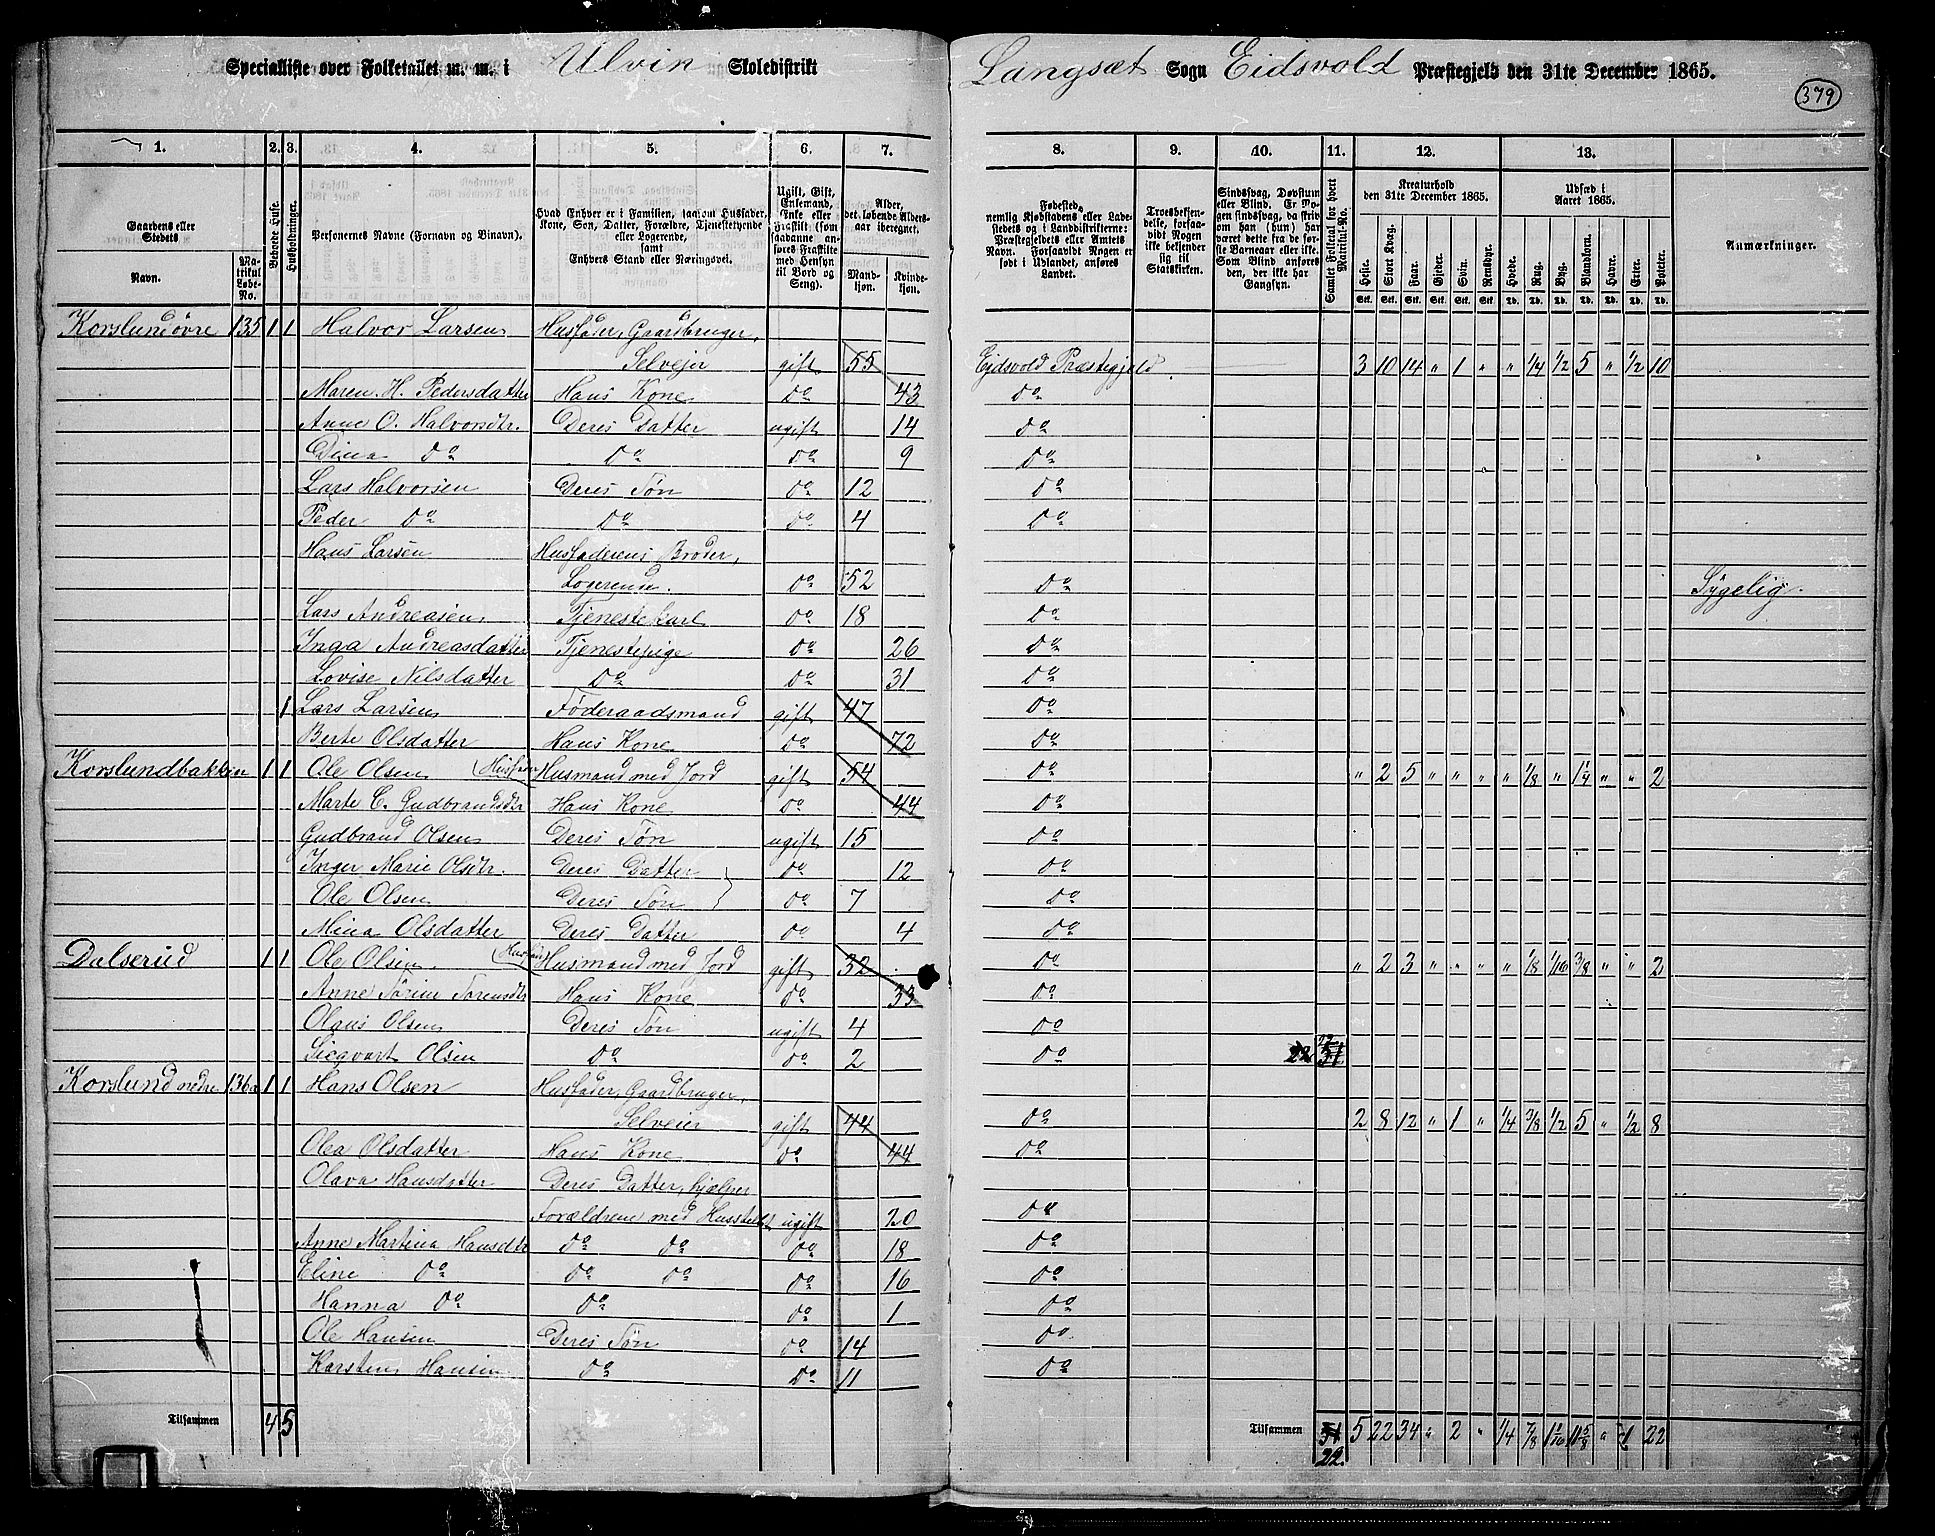 Specialliste over Folketallet m. m. i Ulvin Skoledistrikt
Langsæt Sogn Eidsvold Præstegjeld den 31te December 1865.
379
1. 2. 3. 4. 5. 6. 7. 8. 9. 10. 11. 12. 13.
Gaardens eller Stedets
Navn.
Matrikul Løbe-No.
Beboede Huse.
Husholdninger.
Personernes Navne (Fornavn og Binavn).
Hvad Enhver er i Familien, saasom Husfader, Kone, Søn, Datter, Forældre, Tjenestetyende eller Logerende, samt Enhvers Stand eller Næringsvei.
Ugift, Gift, Enkemand, Enke eller Fraskilt (som saadanne anføres Fraskilte med Hensyn til Bord og Seng).
Alder, det løbende Aldersaar iberegnet.
Mandkjøn. Kvindekjøn.
Fødested, nemlig Kjøbstadens eller Ladestedets og i Landdistrikterne: Præstegjeldets eller Amtets Navn. Forsaavidt Nogen er født i Udlandet, anføres Landet.
Troesbekjendelse, forsaavidt Nogen ikke bekjender sig til Statskirken.
Sindssvag, Døvstum eller Blind. Er Nogen sindssvag, da skriv om han (hun) har været dette fra de første Barneaar eller ikke. Som Blind anføres den, der ikke har Gangsyn.
Samlet Folketal for hvert Matrikul-No.
Kreaturhold den 31te December 1865.
Heste. Stort Kvæg. Faar. Gjeder. Svin. Rensdyr.
Udsæd i Aaret 1865.
Hvede. Rug. Byg. Blandkorn. Havre. Erter. Poteter.
Anmærkninger.
Korslund øvre 135 1 1 Halvor Larsen Husfader, Gaardbruger,
Selveier gift 55 Eidsvold Præstegjeld 3 10 14 " 1 " " 1/4 1/2 5 " 1/2 10
Maren H. Pedersdatter Hans Kone do 43 do
Anne O. Halvorsdtr. Deres Datter ugift 14 do
Dina do do do 9 do
Lars Halvorsen Deres Søn do 12 do
Peder do do do 4 do
Hans Larsen Husfaderens Broder,
Logerende. do 52 do Sygelig.
Lars Andreasen Tjenestekarl do 18 do
Inga Andreasdatter Tjenestepige do 26 do
Lovise Nilsdatter do do 31 do
1 Lars Larsen Føderaadsmand gift 47 do
Berte Olsdatter Hans Kone do 72 do
Korslundbakken 1 1 Ole Olsen (Husfader) Husmand med Jord gift 54 do " 2 5 " " " " 1/8 " 1 1/4 " " 2
Marte C. Gudbrandsdtr Hans Kone do 44 do
Gudbrand Olsen Deres Søn ugift 15 do
Inger Marie Olsdtr. Deres Datter do 12 do
Ole Olsen Deres Søn do 7 do
Mina Olsdatter Deres Datter do 4 do
Dalserud 1 1 Ole Olsen. (Husfader) Husmand med Jord gift 32 do " 2 3 " " " " 1/8 1/16 3/8 " " 2
Anne Sørine Sørensdtr Hans Kone do 33 do
Olaus Olsen Deres Søn ugift 4 do
Sigvart Olsen do do 2 do 22
Korslund nedre 136a 1 1 Hans Olsen Husfader, Gaardbruger,
Selveier gift 44 do 2 8 12 " 1 " 1/4 3/8 1/2 5 " 1/2 8
Olea Olsdatter Hans Kone do 44 do
Olava Hansdatter Deres Datter, hjælper
Forældrene med Husstellet ugift 20 do
Anne Martina Hansdtr do do do 18 do
Eline do do do do 16 do
Hanna do do do 1 do
Ole Hansen Deres Søn do 14 do
Karsten Hansen do do 11 do
Tilsammen 4 5 Tilsammen 31 5 22 34 " 2 " 1/4 7/8 1 1/16 11 5/8 " 1 22
22.